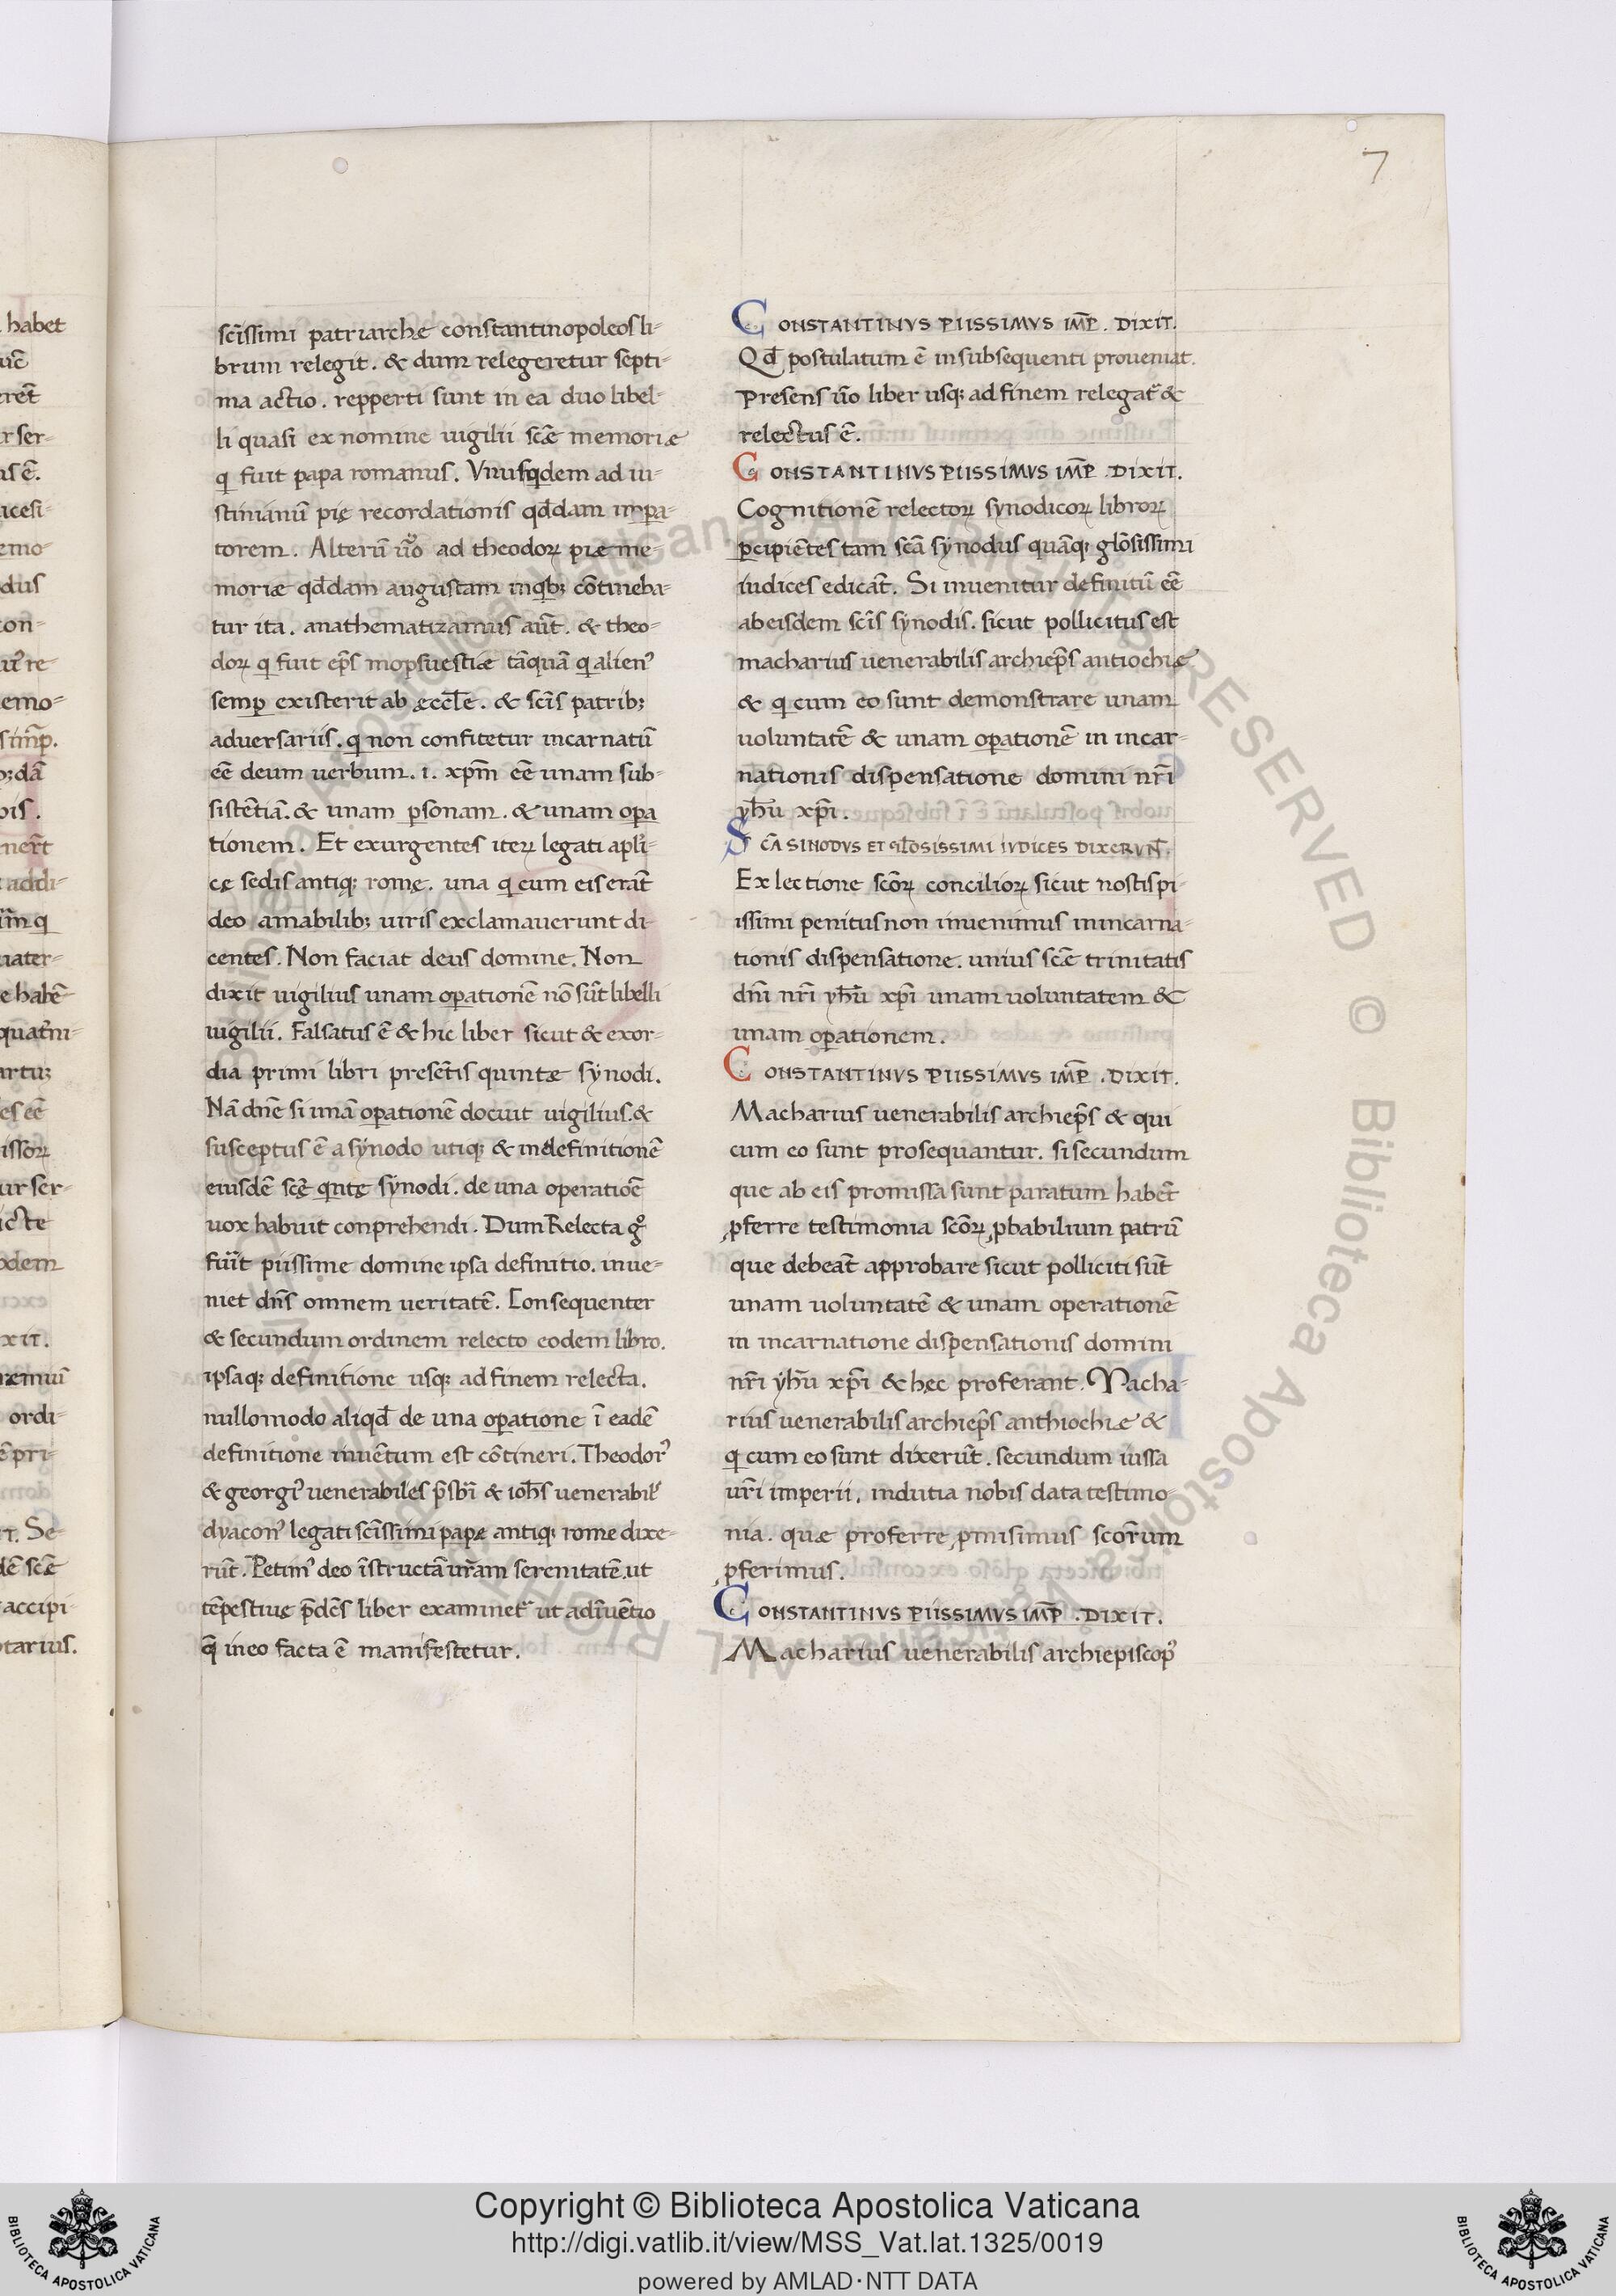 7
scīssimi patriarchæ constantinopoleos li-
brum relegit. & dum relegeretur septi-
ma actio. repperti sunt in ea duo libel-
li quasi ex nomine uigilii scǣ memoriæ
q fuit papa romanus. Vnusqdem ad iu-
stinianū pię recordationis qd̄dam impa-
torem. Alterū ūo ad theodoꝝ piæ me-
moriæ qd̄dam augustam inqb; cōtineba-
tur ita. anathematizamus aūt. & theo-
doꝝ q fuit ep̄s mopsuestiæ tāquā q alienꝰ
semp existerit ab ęccl̄e. & scīs patrib;
aduersariis. q non confitetur incarnatū
eē deum uerbum. i. xp̄m eē unam sub-
sistētiā. & unam psonam. & unam opa
tionem. Et exurgentes iteꝝ legati apl̄i-
cę sedis antiq; romę. una q cum eis erāt
deo amabilib; uiris exclamauerunt di-
centes. Non faciat deus domine. Non
dixit uigilius unam opationē nō sūt libelli
uigilii. Falsatus ē & hic liber sicut & exor-
dia primi libri presētis quintæ synodi.
Nā dn̄e si unā opationē docuit uigilius. &
susceptus ē a synodo utiq; & indefinitionē
eiusdē scę̄ qntę synodi. de una operatiōe
uox habuit conprehendi. Dum Relecta gͦ
fuīt piissime domine ipsa definitio. inue-
niet dn̄s omnem ueritatē. Consequenter
& secundum ordinem relecto eodem libro.
ipsaq; definitione usq; ad finem relecta.
nullomodo aliqd̄ de una opatione ī eadē
definitione inuētum est cōtineri. Theodorꝰ
& georgiꝰ uenerabiles p̄sbr̄i & ioh̄s uenerabil'
dyaconꝰ legati scīssimi papę antiq; rome dixe-
rūt. Petimꝰ deo īstructā ur̄am serenitatē. ut
tēpestiue p̄dēs liber examinet᷑ ut adīuētio
q̄ ineo facta ē manifestetur.
CONSTANTINVS PIISSIMVS IMP̄. DIXIT.
Qd̄ postulatum ē insubsequenti proueniat.
Presens ūo liber usq; ad finem relegat᷑ &
relectus ē.
CONSTANTINVS PIISSIMVS IMP̄. DIXIT.
Cognitionē relectoꝝ synodicoꝝ libroꝝ
pcipiētes tam scā synodus quāq; glōsissimi
iudices edicāt. Si inuenitur definitū eē
ab eisdem scīs synodis. sicut pollicitus est
macharius uenerabilis archiep̄s antiochiæ
& q cum eo sunt demonstrare unam
uoluntatē & unam opationē in incar-
nationis dispensatione domini nr̄i
yh̄u xp̄i.
SCĀ SINODVS ET GLŌSISSIMI IVDICES DIXERVN̄T.
Ex lectione scōꝝ concilioꝝ sicut nostis pi-
issimi penitus non inuenimus in incarna-
tionis dispensatione. unius scǣ trinitatis
dn̄i nr̄i yh̄u xp̄i unam uoluntatem &
unam opationem.
CONSTANTINVS PIISSIMVS IMP̄. DIXIT.
Macharius uenerabilis archiep̄s & qui
cum eo sunt prosequantur. si secundum
que ab eis promissa sunt paratum habēt
pferre testimonia scōꝝ pbabilium patrū
que debeāt approbare sicut polliciti sūt
unam uoluntatē & unam operationē
in incarnatione dispensationis domini
nr̄i yh̄u xp̄i & hęc proferant. Macha-
rius uenerabilis archiep̄s anthiochiæ &
q cum eo sunt dixerūt. secundum iussa
ur̄i imperii. indutia nobis data testimo-
nia. quæ proferre pmisimus scōrum
pferimus.
CONSTANTINVS PIISSIMVS IMP̄. DIXIT.
Macharius uenerabilis archiepiscopꝰ
Copyright © Biblioteca Apostolica Vaticana
http://digi.vatlib.it/view/MSS_Vat.lat.1325/0019
powered by AMLAD·NTT DATA
BIBLIOTECA APOSTOLICA VATICANA
BIBLIOTECA APOSTOLICA VATICANA